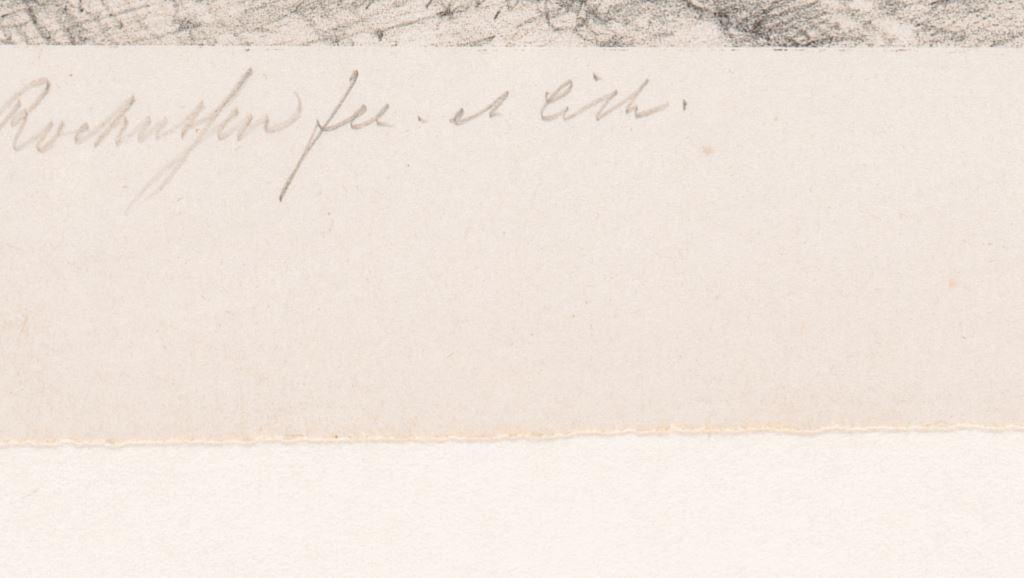 Rochussen fec. et lith.